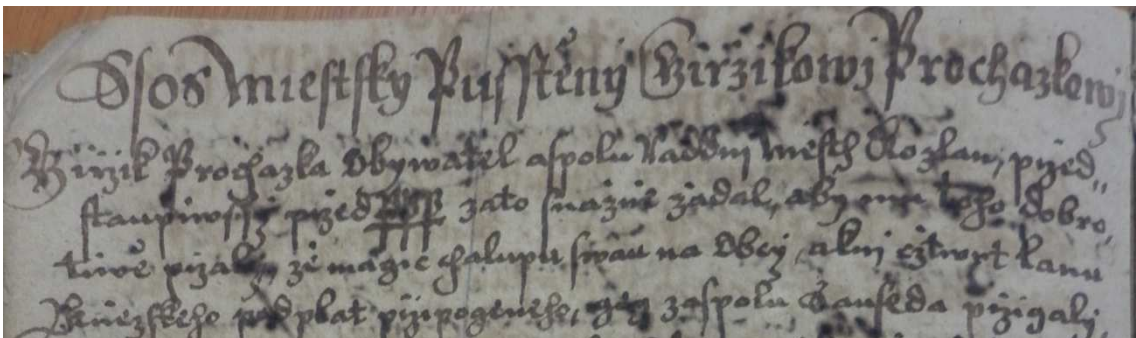 Ssos Miestsky Pusstený Girzikowj Prochazkowj
Girzik Prochazka Obywatel aspolu Raddnj Miesta Rozlau, przed„
staupiwssy przed PPP zato snažnie žadal, aby mu toho dobro„
tiwě přzali, že magic chalupu swau na Obcy, aknj cztwrt Lanu
Knězskeho pod plat przipogeneho, gey zaspolu Sauseda przigali,